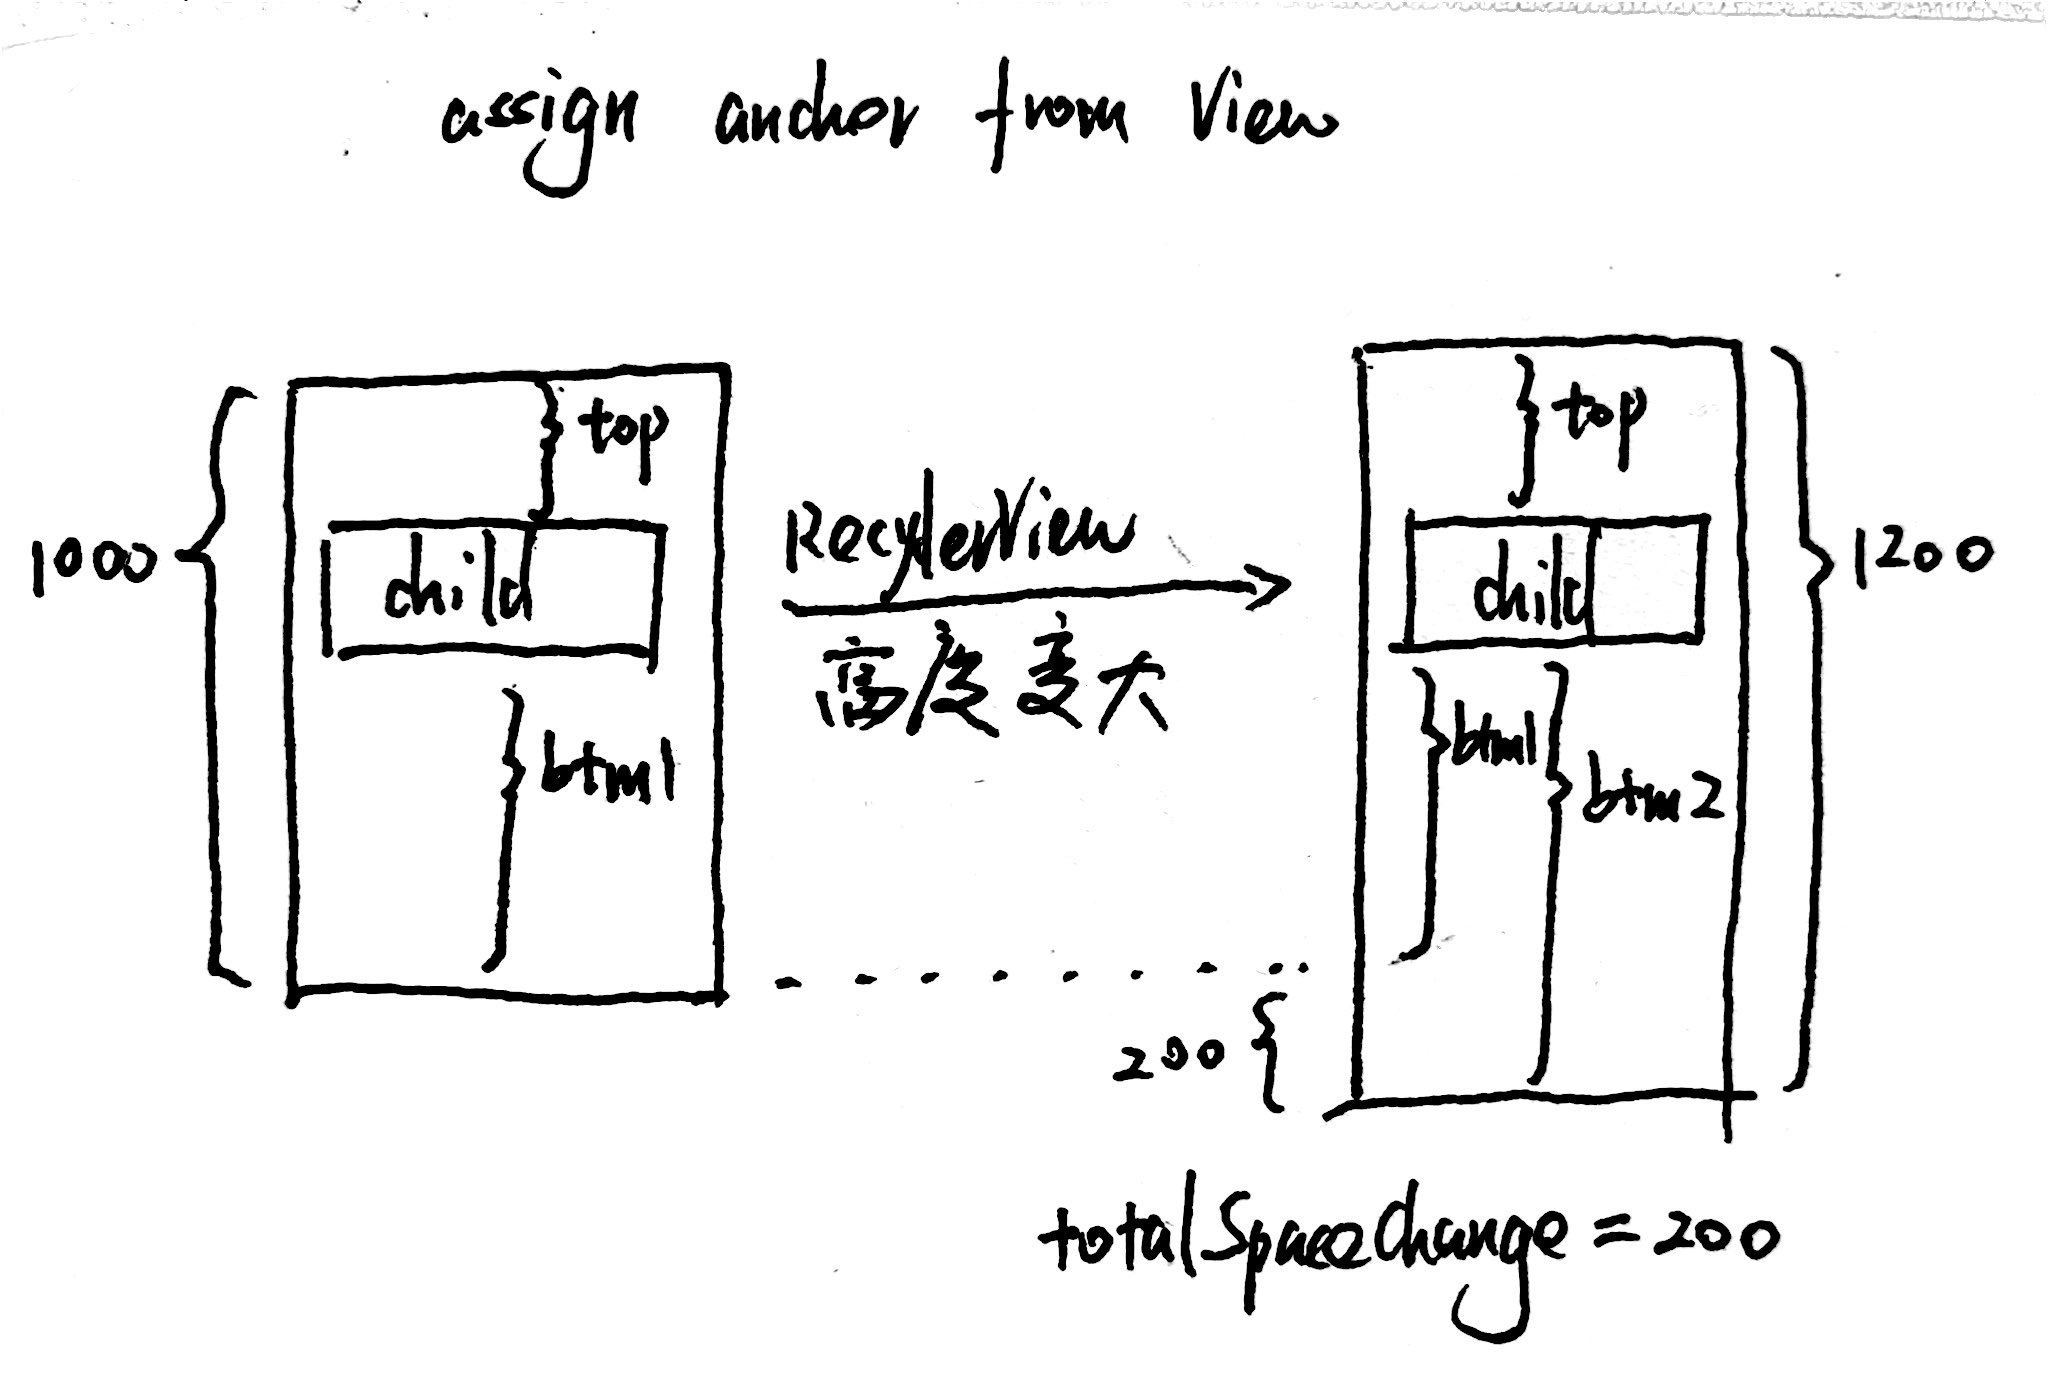 assign anchor from View
1000
top
child
btm1
RecyclerView
高度变大
top
child
btm1
btm2
1200
200
totalSpaceChange = 200